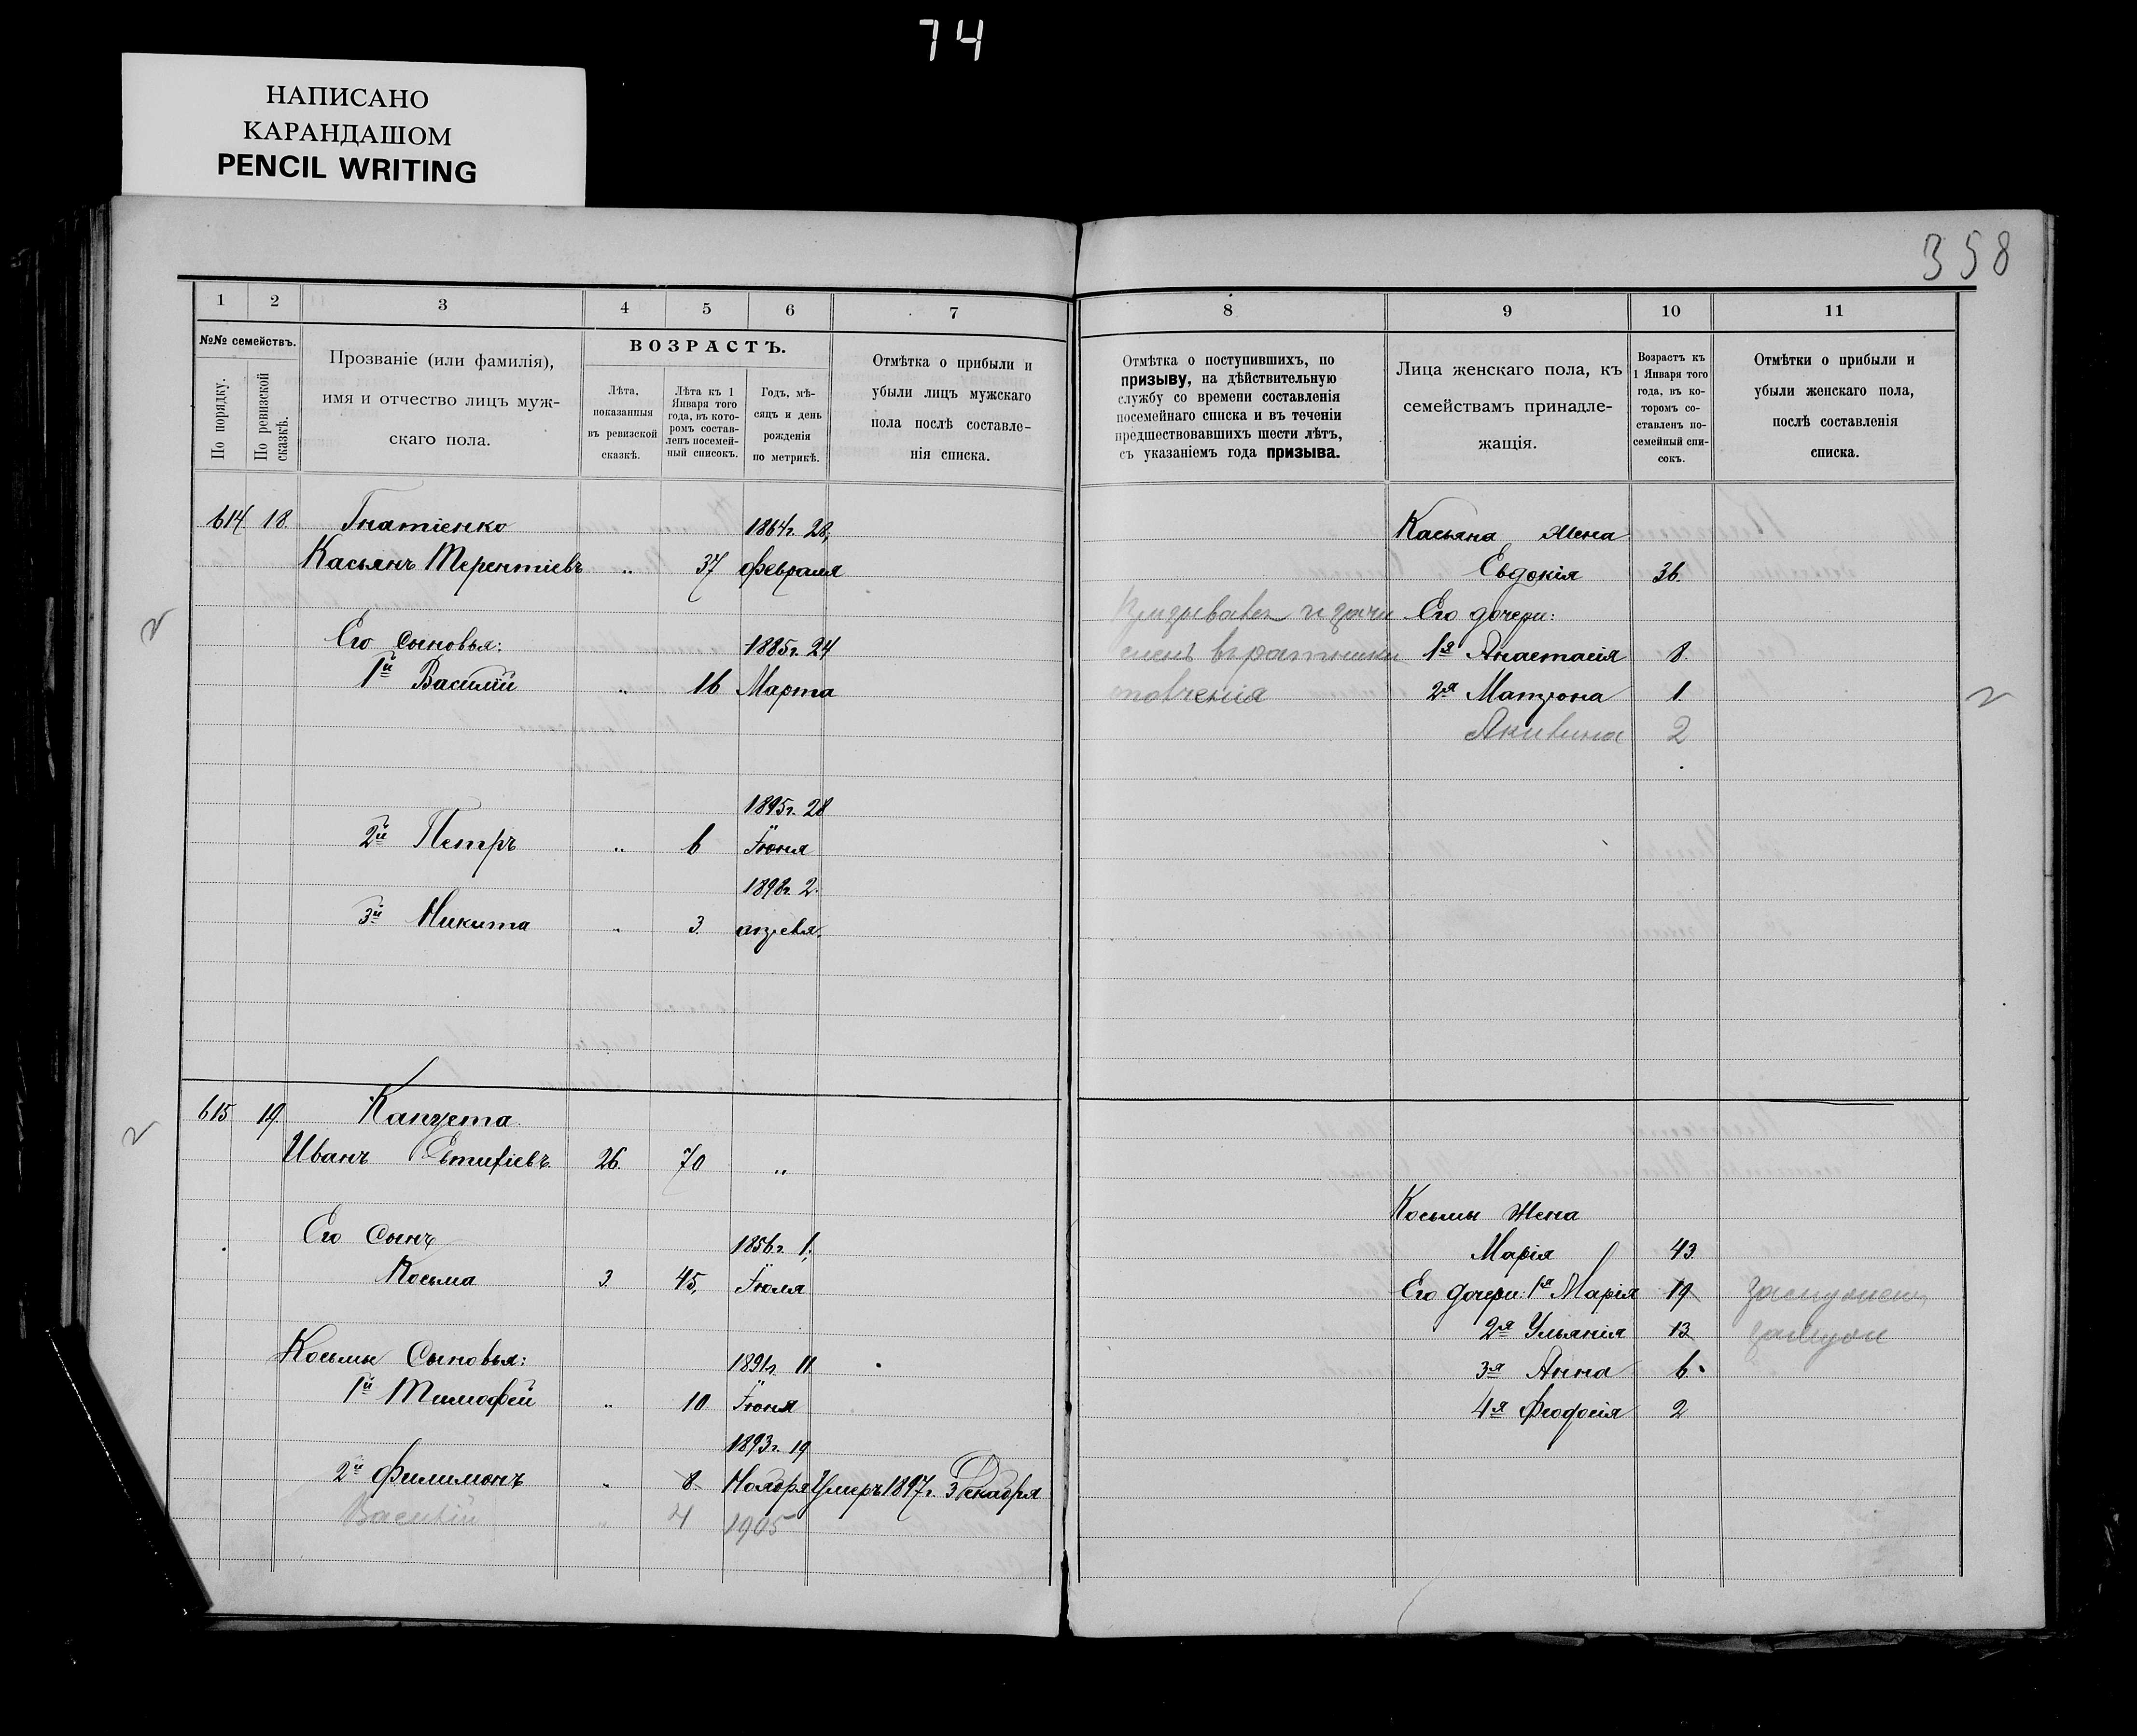 74
НАПИСАНО
КАРАНДАШОМ
PENCIL WRITING
358
1 2 3 4 5 6 7
№№ семействъ.
По порядку.
По ревизской сказкѣ.
Прозваніе (или фамилія),
имя и отчество лицъ муж-
скаго пола.
ВОЗРАСТЪ.
Лѣта,
показанныя
въ ревизской
сказкѣ.
Лѣта къ 1
Января того
года, въ кото-
ромъ состав-
ленъ посемей-
ный список.
Годъ, мѣ-
сяцъ и день
рожденія
по метрикѣ.
Отмѣтка о прибыли и
убыли лицъ мужскаго
пола послѣ составле-
нія списка.
614 18 Гнатіенко 1864г. 28,
Касьянъ Терентіевъ „ 37 февраля
Его сыновья: 1885г. 24
1й Василій „ 16 Марта
1895г. 28
2й Петръ „ 6 Іюня
1898г. 2.
3й Никита „ 3 апреля.
615 19. Капуста.
Иванъ 26 70 „
Его Сынъ 1856г. 1.
Косьма 3 45, Іюля
Косьмы Сыновья: 1891г. 11
1й Тимофей „ 10 Іюня
1893г. 19
2й Филимонъ „ 8 Ноября Умеръ 1897г. 3 Декабря
Василій „ 4 1905
8 9 10 11
Отмѣтка о поступившихъ, по
призыву, на дѣйствительную
службу со времени составленія
посемейнаго списка и въ теченіи
предшествовавшихъ шести лѣтъ,
съ указаніемъ года призыва.
Лица женскаго пола, къ
семействамъ принадле-
жащія.
Возрастъ къ
1 Января того
года, въ ко-
торомъ со-
ставленъ по-
семейный спи-
сокъ.
Отмѣтки о прибыли и
убыли женскаго пола,
послѣ составленія
списка.
Касьяна жена
Евдокія 36
Его дочери:
въ ратники 1я Анастасія 8.
2я Матрона 1.
Акилина 2
Косьмы жена
Марія 43
Его дочери: 1я Марія 19
2я Ульянія 13
3я Анна 6.
4я Феодосія 2